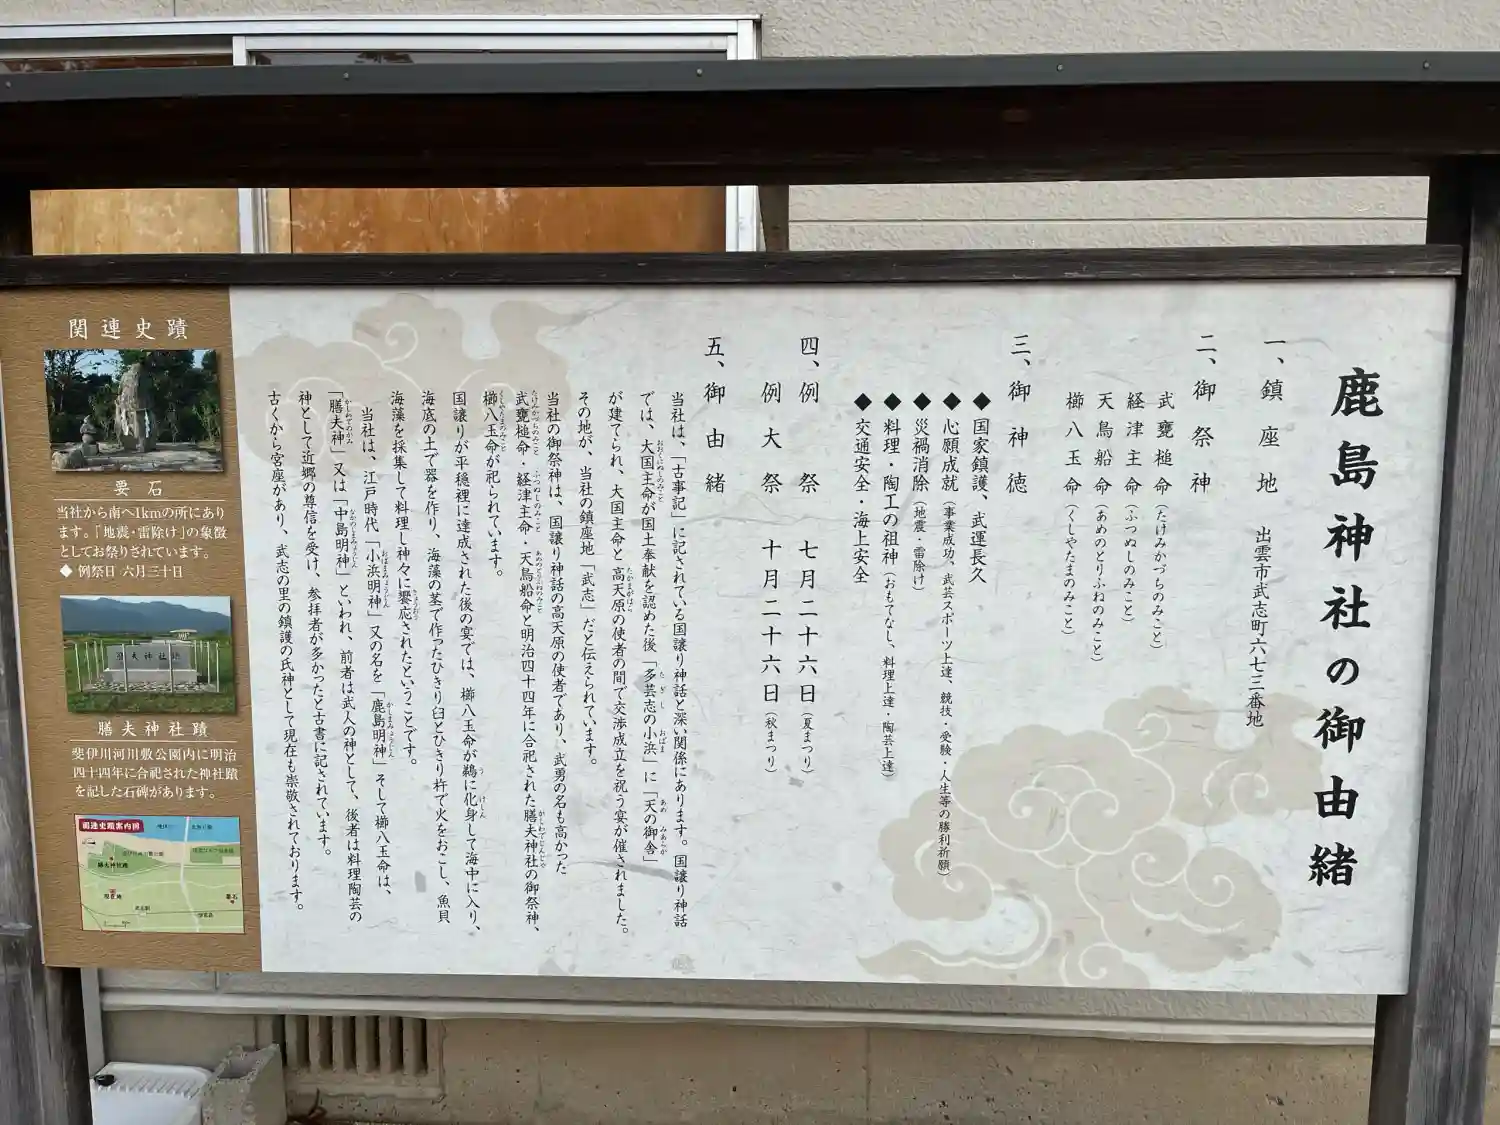 鹿島神社の御由緒
一、鎮座地　出雲市武志町六七三番地
二、御祭神
武甕槌命（たけみかづちのみこと）
経津主命（ふつぬしのみこと）
天鳥船命（あめのとりふねのみこと）
櫛八玉命（くしやたまのみこと）
三、御神徳
◆国家鎮護、武運長久
◆心願成就（事業成功、武芸スポーツ上達、競技・受験・人生等の勝利祈願）
◆災禍消除（地震・雷除け）
◆料理・陶工の祖神（おもてなし、料理上達・陶芸上達）
◆交通安全・海上安全
四、例祭　七月二十六日（夏まつり）
例大祭　十月二十六日（秋まつり）
五、御由緒
当社は、「古事記」に記されている国譲り神話と深い関係にあります。国譲り神話
では、大国主命が国土奉献を認めた後「多芸志の小浜」に「天の御舎」
が建てられ、大国主命と高天原の使者の間で交渉成立を祝う宴が催されました。
その地が、当社の鎮座地「武志」だと伝えられています。
当社の御祭神は、国譲り神話の高天原の使者であり、武勇の名も高かった
武甕槌命・経津主命・天鳥船命と明治四十四年に合祀された膳夫神社の御祭神、
櫛八玉命が祀られています。
国譲りが平穏裡に達成された後の宴では、櫛八玉命が鵜に化身して海中に入り、
海底の土で器を作り、海藻の茎で作ったひきり臼とひきり杵で火をおこし、魚貝
海藻を採集して料理し神々に饗応されたということです。
当社は、江戸時代「小浜明神」又の名を「鹿島明神」そして櫛八玉命は、
「膳夫神」又は「中島明神」といわれ、前者は武人の神として、後者は料理陶芸の
神として近郷の尊信を受け、参拝者が多かったと古書に記されています。
古くから宮座があり、武志の里の鎮護の氏神として現在も崇敬されております。
関連史蹟
要石
当社から南へ1kmの所にあり
ます。「地震・雷除け」の象徴
としてお祭りされています。
◆ 例祭日 六月三十日
膳夫神社蹟
斐伊川河川敷公園内に明治
四十四年に合祀された神社蹟
を記した石碑があります。
関連史蹟案内図
膳夫神社蹟
現在地
要石